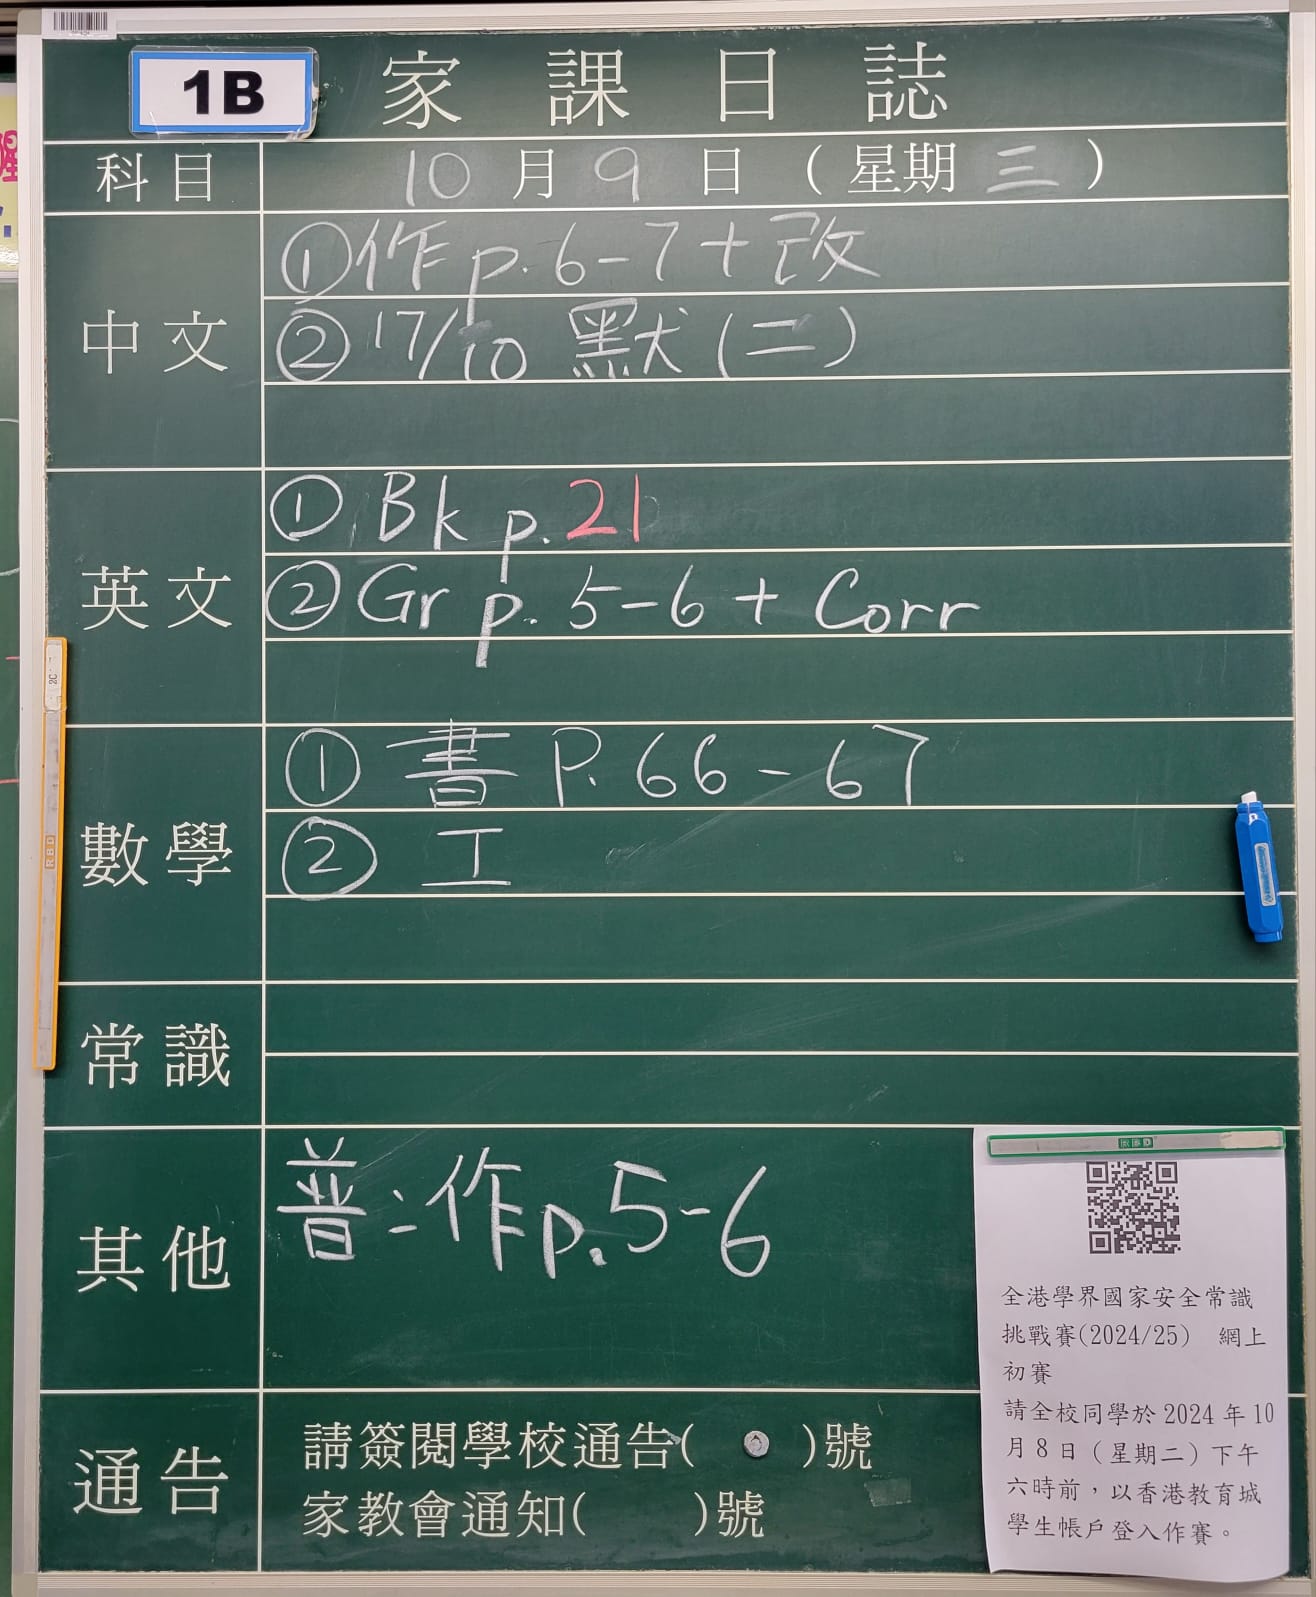 1B
家課日誌
科目 10月9日（星期三）
中文
①作p.6-7+改
②17/10 默(二)
英文
①Bk p.21
②Gr p.5-6 + Corr
數學
①書 P.66-67
②工
常識
其他
普：作p.5-6
通告
請簽閱學校通告( )號
家教會通知( )號
全港學界國家安全常識
挑戰賽(2024/25) 網上
初賽
請全校同學於2024年10
月8日（星期二）下午
六時前，以香港教育城
學生帳戶登入作賽。
2C
RBD